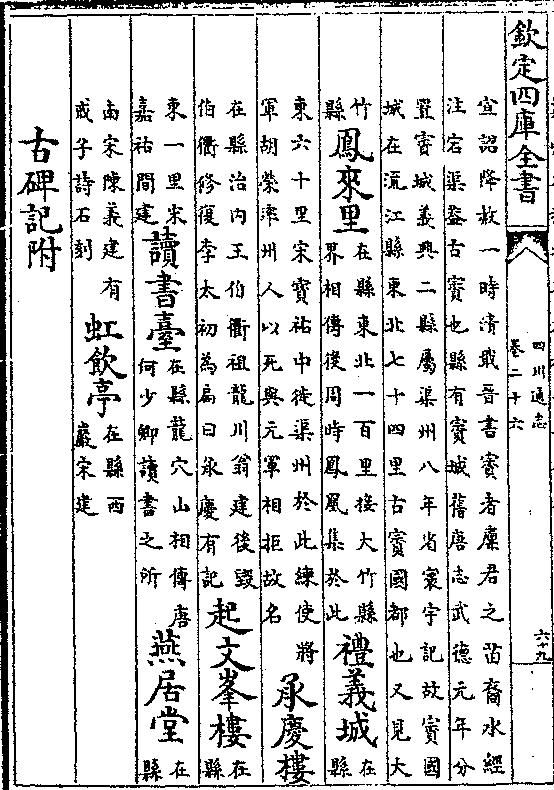 欽定四庫全書
四川通志
卷二十六
六十九
宣詔降赦一時清戢晉書賨者廩君之苗裔水經
注宕渠蓋古賨也縣有賨城舊唐志武德元年分
置賨城義興二縣屬渠州八年省寰宇記故賨國
城在流江縣東北七十四里古賨國都也又見大
竹
縣
鳳來里
在縣東北一百里接大竹縣
界相傳後周時鳳凰集於此
禮義城
在
縣
東六十里宋寳祐中徙渠州於此練使將
軍胡榮漳州人以死與元軍相拒故名
承慶樓
在縣治内王伯衢祖龍川翁建後毀
伯衢修復李太初為扁曰承慶有記
起文峯樓
在
縣
東一里宋
嘉祐間建
讀書臺
在縣龍穴山相傳唐
何少卿讀書之所
燕居堂
在
縣
南宋陳義建有
或子詩石刻
虹飲亭
在縣西
巖宋建
古碑記附